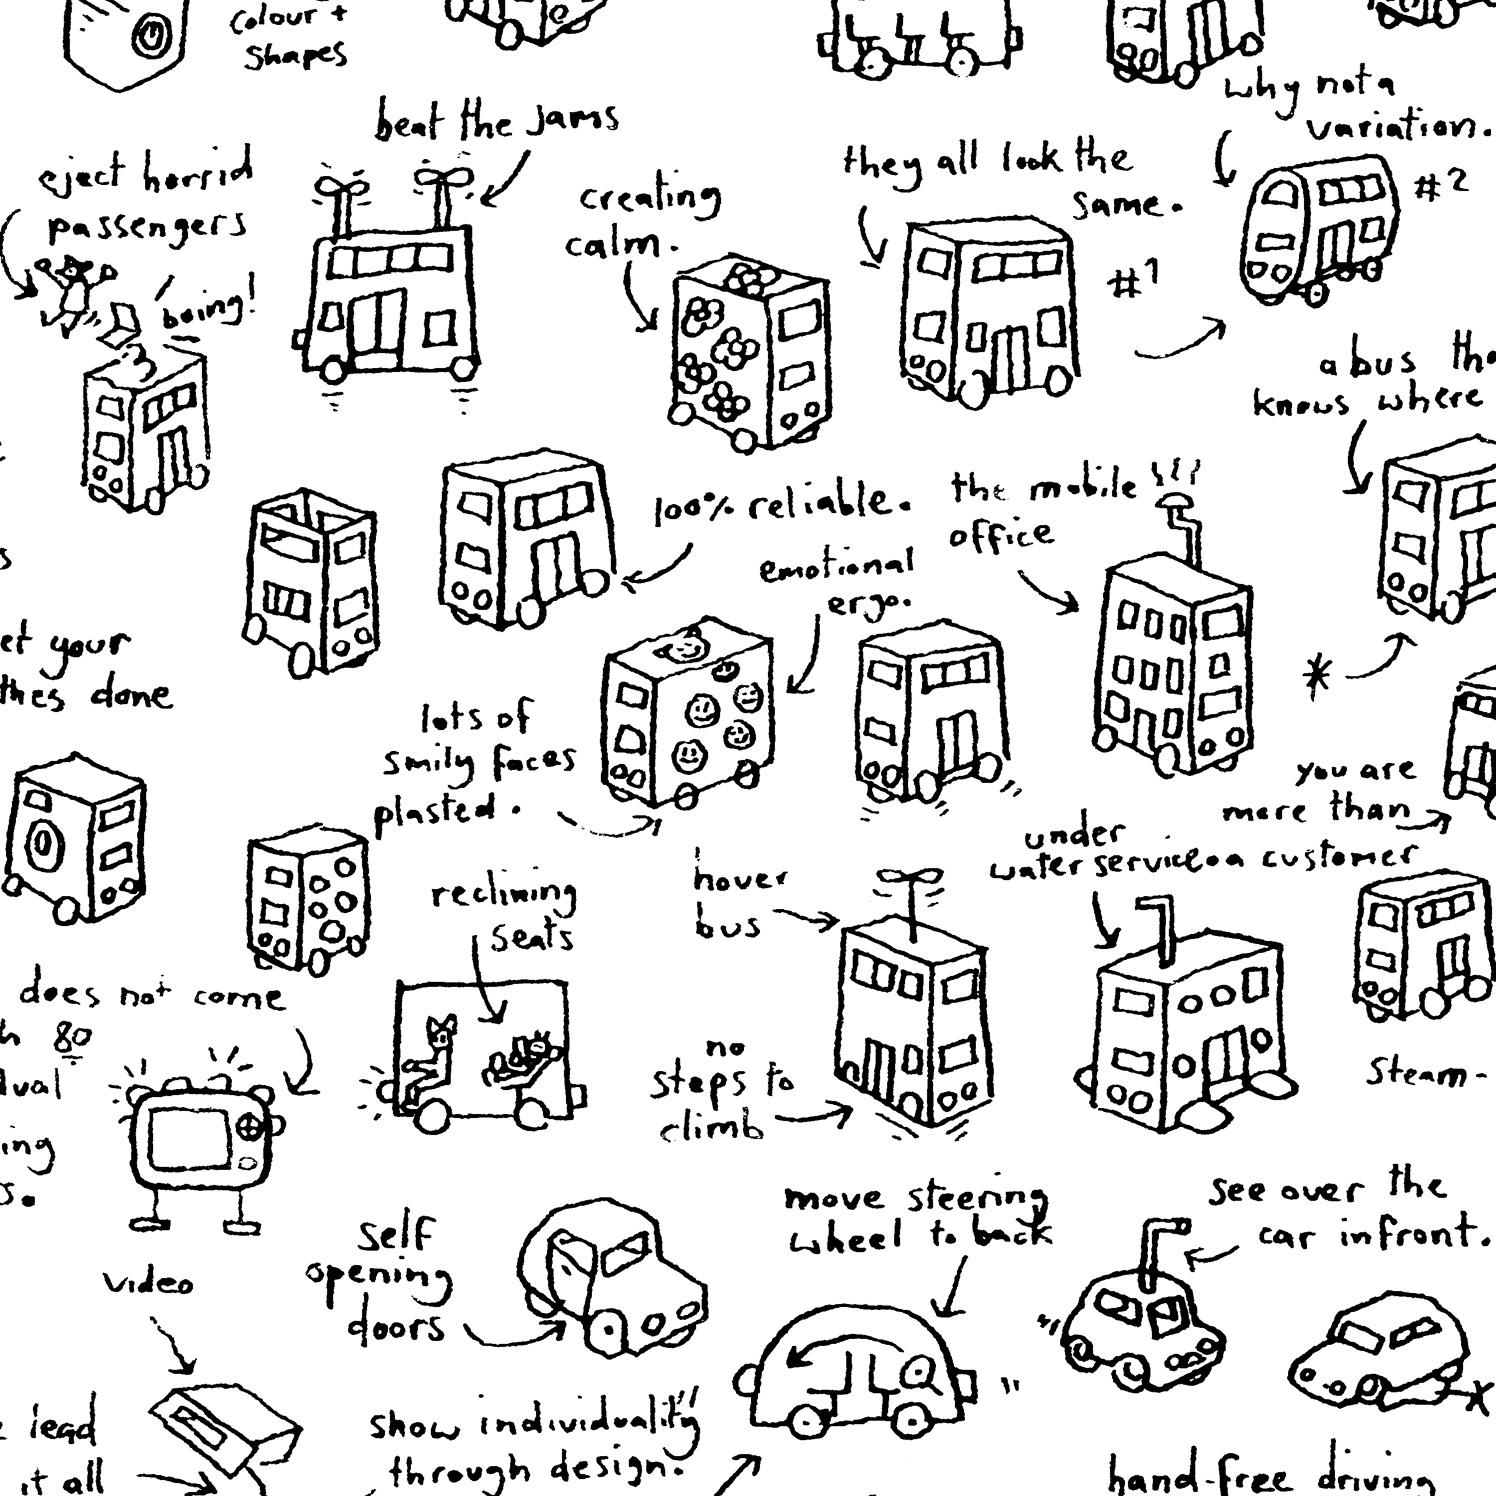 colour +
shapes
why not a
variation.
#2
beat the jams
eject horrid
passengers
boing!
creating
calm.
they all look the
same.
#1
a bus tha
knows where
100% reliable.
the mobile
office
emotional
ergo.
s
et your
thes done
lots of
smily faces
plasted.
*
you are
more than
a customer
under
water service
hover
bus
reclining
seats
does not come
h 80
dual
ing
s.
no
steps to
climb
Steam-
self
opening
doors
move steering
wheel to back
see over the
car infront.
video
lead
it all
show individuality
through design.
hand-free driving